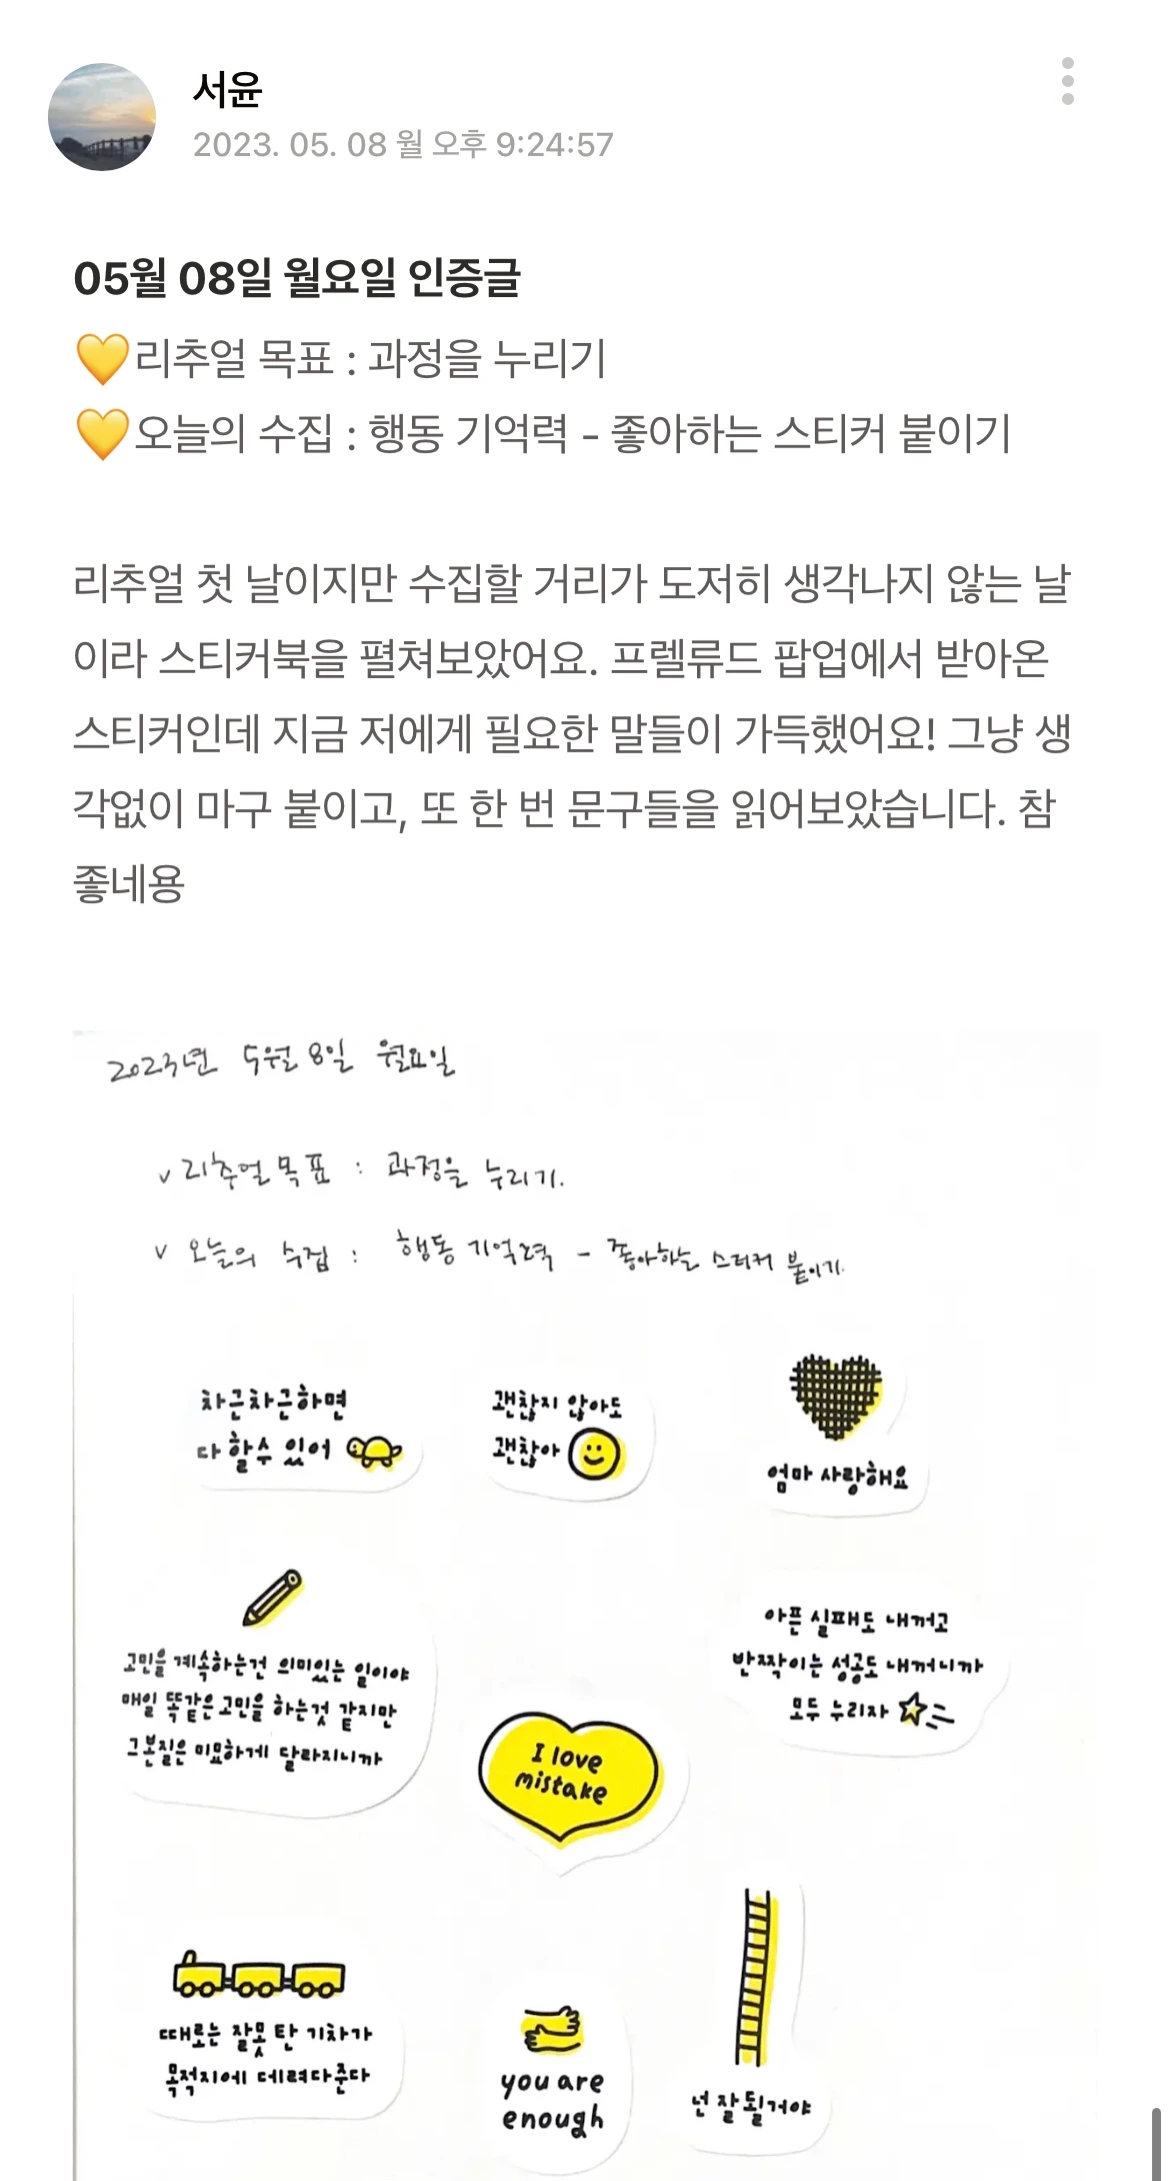 서윤
2023. 05. 08 월 오후 9:24:57
05월 08일 월요일 인증글
💛리추얼 목표 : 과정을 누리기
💛오늘의 수집 : 행동 기억력 - 좋아하는 스티커 붙이기
리추얼 첫 날이지만 수집할 거리가 도저히 생각나지 않는 날
이라 스티커북을 펼쳐보았어요. 프렐류드 팝업에서 받아온
스티커인데 지금 저에게 필요한 말들이 가득했어요! 그냥 생
각없이 마구 붙이고, 또 한 번 문구들을 읽어보았습니다. 참
좋네용
2023년 5월 8일 월요일
v 리추얼 목표 : 과정을 누리기.
v 오늘의 수집 : 행동 기억력 - 좋아하는 스티커 붙이기.
차근차근하면
다 할수 있어
괜찮지 않아도
괜찮아
엄마 사랑해요
고민을 계속하는건 의미있는 일이야
매일 똑같은 고민을 하는것 같지만
그 본질은 미묘하게 달라지니까
아픈 실패도 내꺼고
반짝이는 성공도 내꺼니까
모두 누리자
I love
mistake
때로는 잘못 탄 기차가
목적지에 데려다준다
you are
enough
넌 잘 될거야